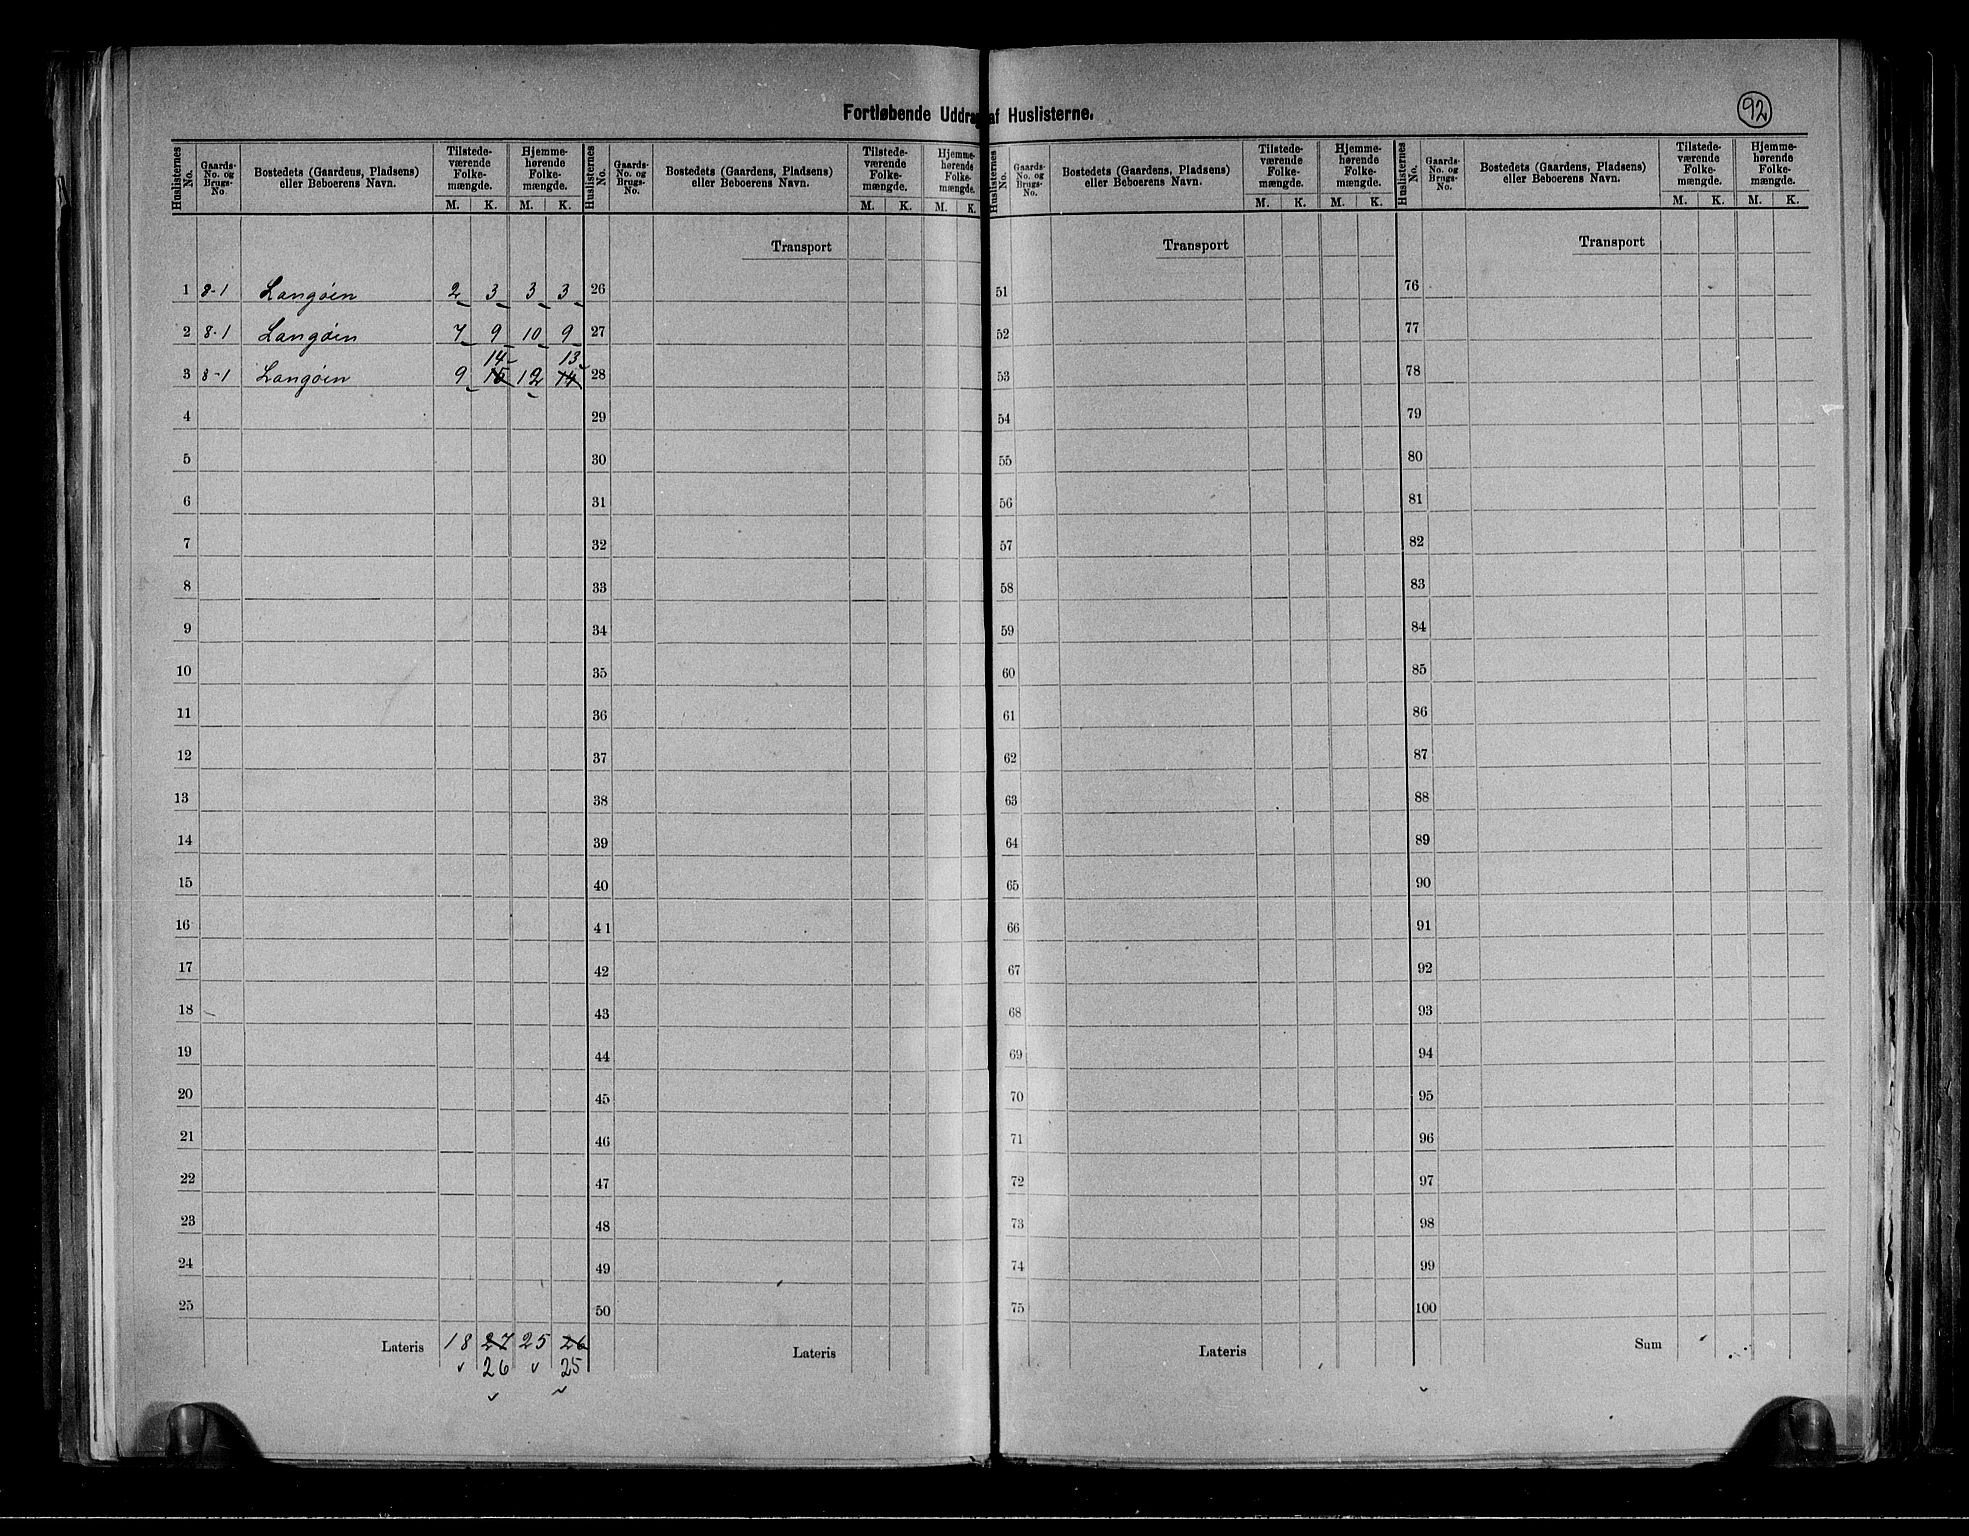 Fortløbende Uddrag af Huslisterne.
92
Huslisternes No. Gaards-No. og Brugs-No. Bostedets (Gaardens, Pladsens) eller Beboerens Navn. Tilstede-værende Folke-mængde. M. K. Hjemme-hørende Folke-mængde. M. K.
1 8-1 Langøen 2 3 3 3
2 8-1 Langøen 7 9 10 9
14 13
3 8-1 Langøen 9 15 12 14
4
5
6
7
8
9
10
11
12
13
14
15
16
17
18
19
20
21
22
23
24
25
Lateris 18 27 25 26
26 25
Huslisternes No. Gaards-No. og Brugs-No. Bostedets (Gaardens, Pladsens) eller Beboerens Navn. Tilstede-værende Folke-mængde. M. K. Hjemme-hørende Folke-mængde. M. K.
Transport
26
27
28
29
30
31
32
33
34
35
36
37
38
39
40
41
42
43
44
45
46
47
48
49
50
Lateris
Huslisternes No. Gaards-No. og Brugs-No. Bostedets (Gaardens, Pladsens) eller Beboerens Navn. Tilstede-værende Folke-mængde. M. K. Hjemme-hørende Folke-mængde. M. K.
Transport
51
52
53
54
55
56
57
58
59
60
61
62
63
64
65
66
67
68
69
70
71
72
73
74
75
Lateris
Huslisternes No. Gaards-No. og Brugs-No. Bostedets (Gaardens, Pladsens) eller Beboerens Navn. Tilstede-værende Folke-mængde. M. K. Hjemme-hørende Folke-mængde. M. K.
Transport
76
77
78
79
80
81
82
83
84
85
86
87
88
89
90
91
92
93
94
95
96
97
98
99
100
Sum